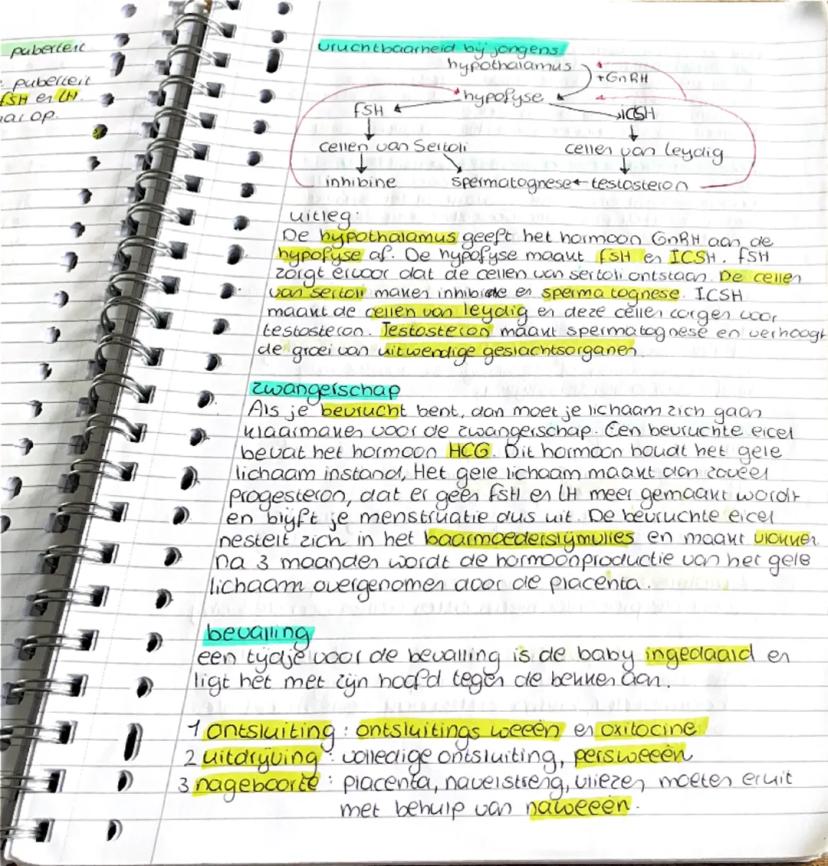 puberteit
: puberteit
FSH en LH
op.
vruchtbaarheid bij jongens
hypothalamus
+GnRH
hypofyse
FSH
ICSH
cellen van Sertoli
cellen van leydig
inhibine
spermatognese
testosteron
uitleg:
De hypothalamus geeft het hormoon GnRH aan de
hypofyse af. De hypofyse maakt FSH en ICSH. FSH
zorgt ervoor dat de cellen van sertoli ontstaan. De cellen
van sertoli maken inhibine en spermatognese. ICSH
maakt de cellen van leydig en deze cellen zorgen voor
testosteron. Testosteron maakt spermatognese en verhoogt
de groei van uitwendige geslachtsorganen.
zwangerschap
Als je bevrucht bent, dan moet je lichaam zich gaan
klaarmaken voor de zwangerschap. Een bevruchte eicel
bevat het hormoon HCG. Dit hormoon houdt het gele
lichaam instand, Het gele lichaam maakt dan zoveel
progesteron, dat er geen FSH en LH meer gemaakt wordt
en blijft je menstruatie dus uit. De bevruchte eicel
nestelt zich in het baarmoederslijmvlies en maakt vlokken
na 3 maanden wordt de hormoonproductie van het gele
lichaam overgenomen door de placenta.
bevalling
een tijdje voor de bevalling is de baby ingedaald en
ligt het met zijn hoofd tegen de bekken aan.
1 ontsluiting : ontsluitings weeën en oxitocine
2 uitdrijving : volledige ontsluiting, persweeën
3 nageboorte : placenta, navelstreng, vliezen moeten eruit
met behulp van naweeën.